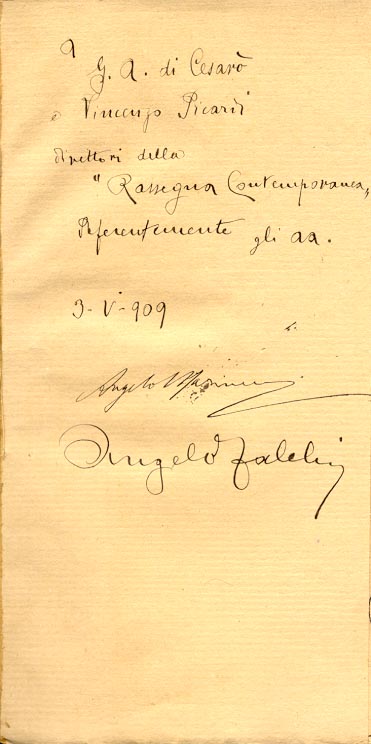 a
G. A. di Cesarò
e Vincenzo Picardi
direttori della
"Rassegna Contemporanea„
Deferentemente gli aa.
3-V-909
Angelo
Angelo